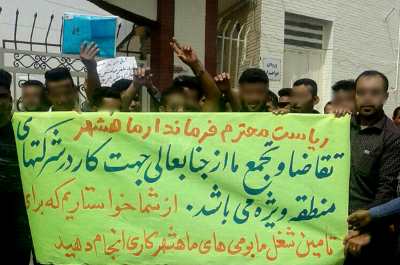 ریاست محترم فرماندار ماهشهر
تقاضا و تجمع ما از جنابعالی جهت کار در شرکتهای
منطقه ویژه می باشد. از شما خواستاریم که برای
تامین شغل ما بومی های ماهشهر کاری انجام دهید